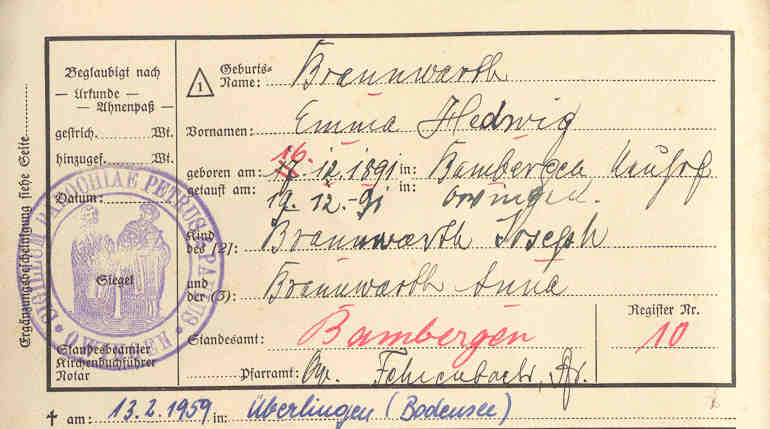 Ergänzungsbescheinigung siehe Seite
Beglaubigt nach
— Urkunde —
— Ahnenpaß —
gestrich. Wt.
hinzugef. Wt.
Datum:
SIGILLUM PAROCHIAE PETRUS PAULUS
Siegel
Standesbeamter
Kirchenbuchführer
Notar
1 Geburts-Name: Braunwarth
Vornamen: Emma Hedwig
geboren am: 16. 12. 1891 in: Bambergen
getauft am: 19. 12. - 91 in: Owingen.
Kind des (2): Braunwarth Joseph
und der (3): Braunwarth Anna
Standesamt: Bambergen
Register Nr.
10
Pfarramt: Fehrenbach, Pfr.
† am: 13.2.1959 in: Überlingen (Bodensee)